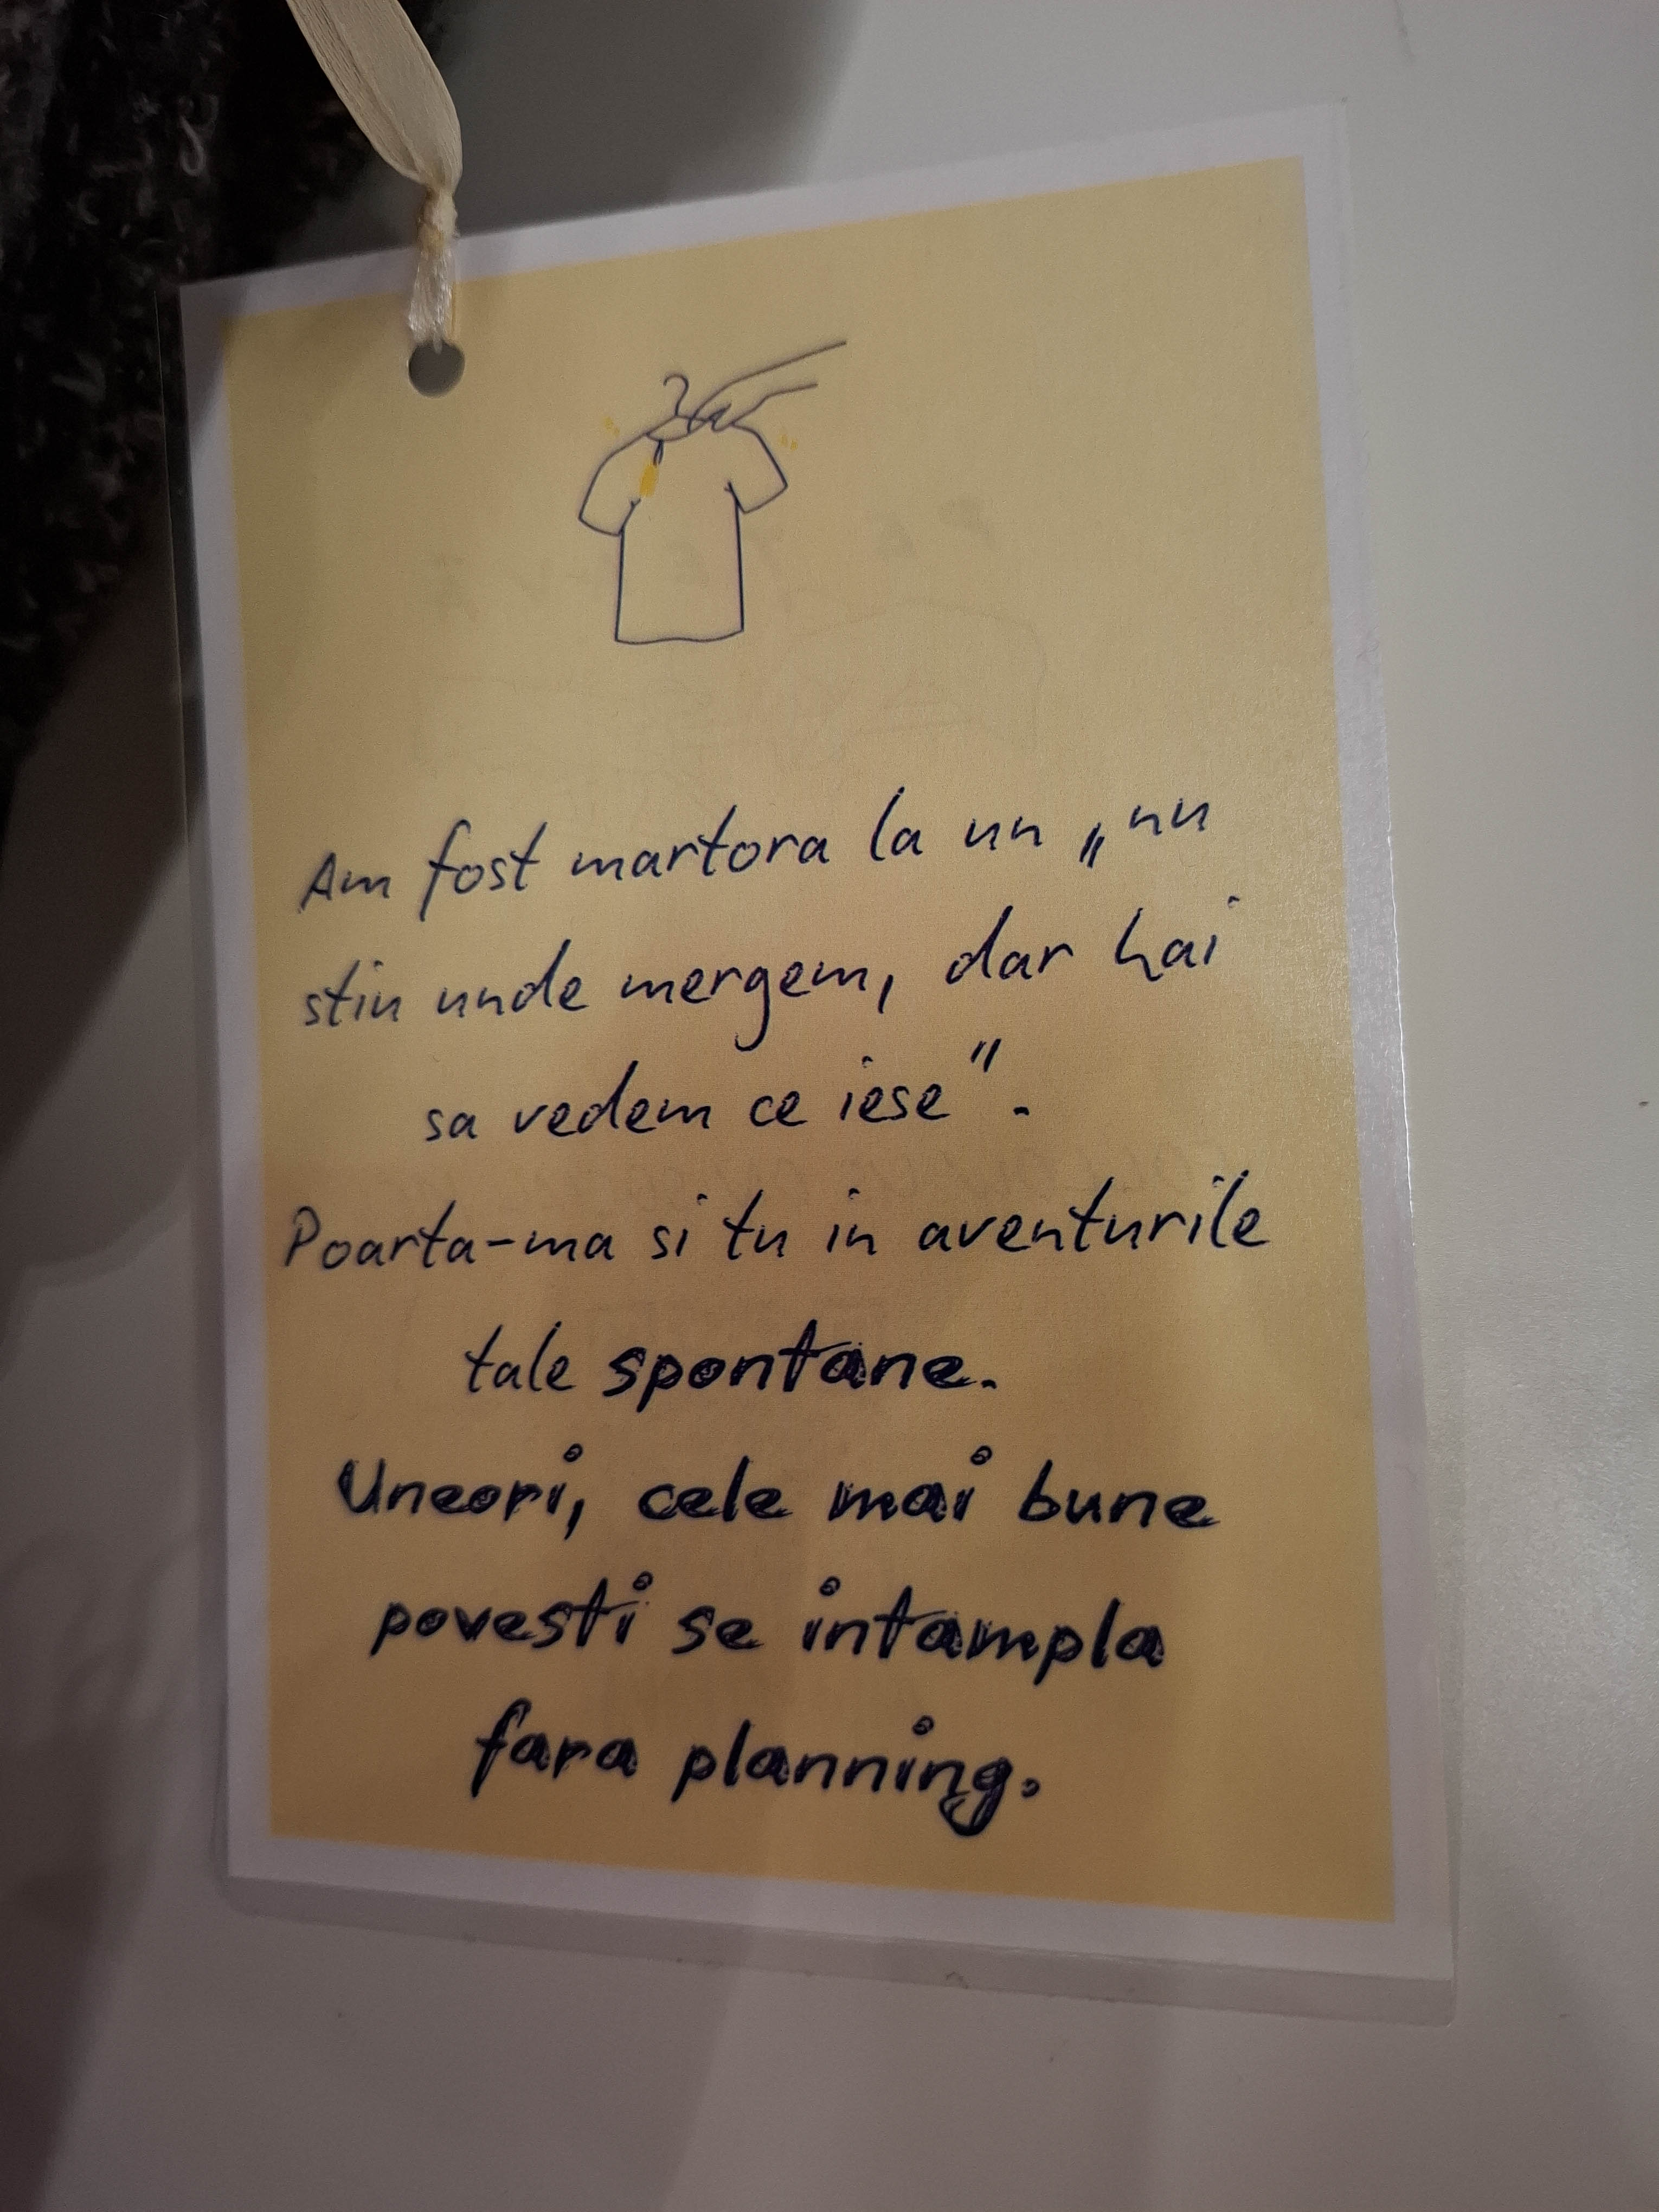 Am fost martora la un „nu
stiu unde mergem, dar hai
sa vedem ce iese”.
Poarta-ma si tu in aventurile
tale spontane.
Uneori, cele mai bune
povesti se intampla
fara planning.